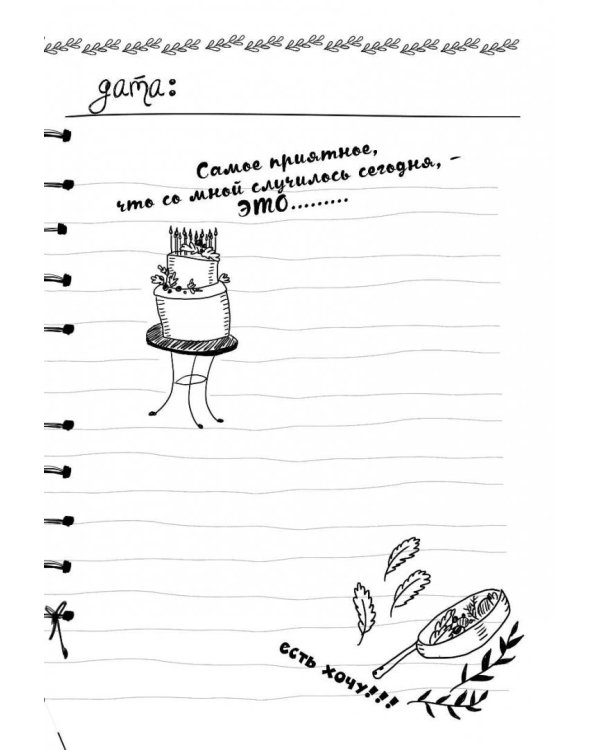 дата:
Самое приятное,
что со мной случилось сегодня, –
ЭТО.........
есть хочу!!!